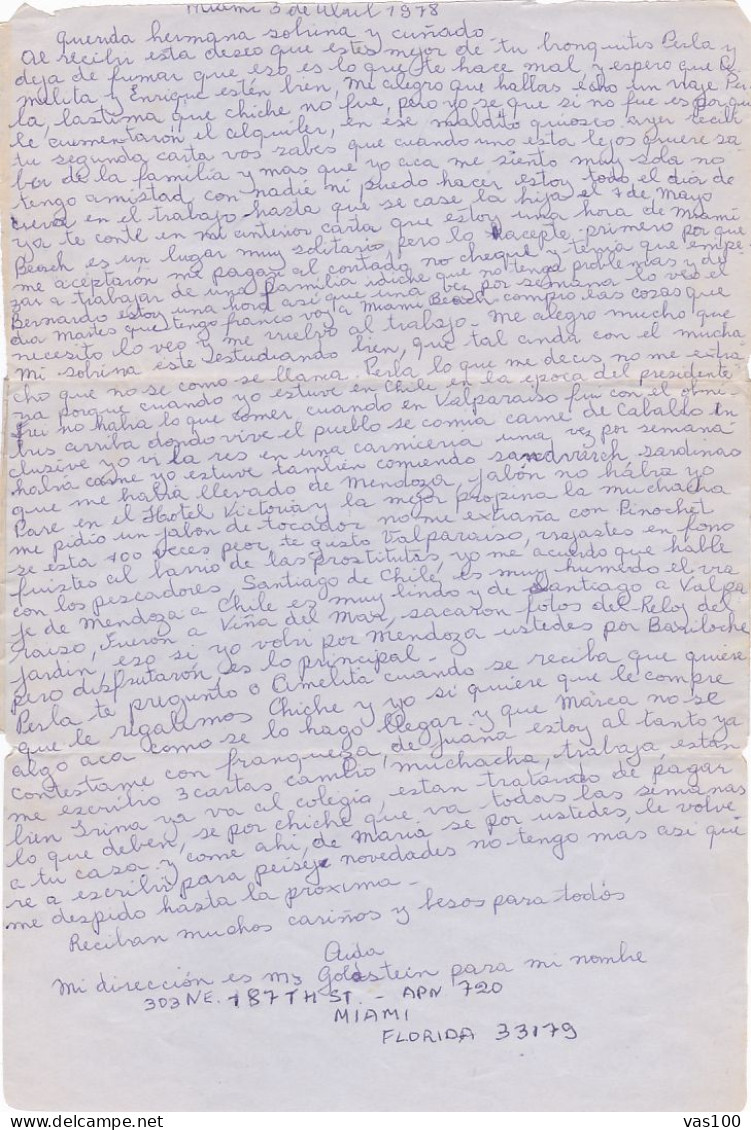 Miami 3 de Abril 1978
Querida hermana sobrina y cuñado
Al recibir esta deseo que estes mejor de tu bronquitis Perla y
deja de fumar que eso es lo que te hace mal, y espero que
melita y Enrique estén bien, Me alegro que hallas echo un viaje Per
la, lastima que chiche no fue, pero yo se que si no fue es por que
le aumentaron el alquiler, en ese maldito quiosco ayer recibi
tu segunda carta vos sabes que cuando uno esta lejos quiere sa
ber de la familia y mas que yo aca me siento muy sola no
tengo amistad con nadie ni puedo hacer estoy todo el dia de
en el trabajo hasta que se case la hija el 7 de Mayo
ya te conté en mi anterior carta que estoy una hora de Miami
Beach es un lugar muy solitario pero lo acepte primero por que
me aceptarón me pagan al contado no cheque y tenia que empe
zar a trabajar de una familia idiche que no tengo problemas y de
Bernardo estoy una hora asi que una vez por semana lo veo el
dia Martes que tengo franco voy a Miami Beach compro las cosas que
necesito lo veo y me vuelvo al trabajo. Me alegro mucho que
Mi sobrina este estudiando bien, que tal anda con el mucha
cho que no se como se llama. Perla lo que me decis no me extra
ña porque cuando yo estuve en Chile en la epoca del presidente
frei no habia lo que comer cuando en Valparaiso fui con el omni
bus arriba donde vive el pueblo se comia carne de Caballo in
clusive yo vi la res en una carniceria una vez por semana
habia carne yo estuve tambien comiendo sandwich sardinas
que me habia llevado de Mendoza, jabón no habia yo
Pare en el Hotel Victoria y la mejor propina la muchacha
me pidio un jabon de tocador no me extraña con Pinochet
se esta 100 veces peor, te gusto Valparaiso, viajastes en fono
fuistes al barrio de las prostitutas, yo me acuerdo que hable
con los pescadores, Santiago de Chile es muy humedo el via
je de Mendoza a Chile es muy lindo y de Santiago a Valpa
raiso, Fuerón a Viña del Mar, sacaron fotos del Reloj del
Jardin, eso si yo volvi por Mendoza ustedes por Bariloche
pero disfrutarón es lo principal -
Perla te pregunto o Amelita cuando se reciba que quiere
que le regalemos Chiche y yo si quiere que le compre
algo aca como se lo hago llegar y que Marca no se
contestame con franqueza de Juana estoy al tanto ya
me escribio 3 cartas cambio muchacha, trabaja, están
bien Irina ya va al colegio, estan tratando de pagar
lo que deben, se por chiche que va todas las semanas
a tu casa y come ahi, de Maria se por ustedes, le volve
re a escribir para peisej novedades no tengo mas asi que
me despido hasta la próxima -
Reciban muchos cariños y besos para todos
Aida
Mi dirección es Ms Goldstein para mi nombre
303 NE. 187TH ST. - APN 720
MIAMI
FLORIDA 33179
vas100